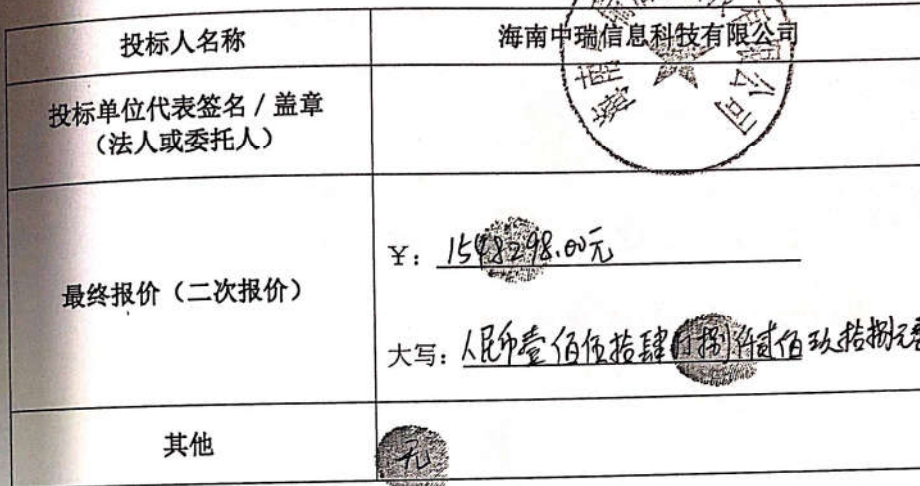 投标人名称
海南中瑞信息科技有限公司
投标单位代表签名／盖章
（法人或委托人）
最终报价（二次报价）
￥：1548298.00元
大写：人民币壹佰伍拾肆万捌仟贰佰玖拾捌元整
其他
无